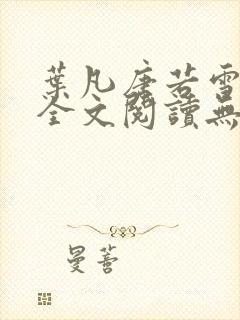 葉凡唐若雪
全文閱讀無
曼薈